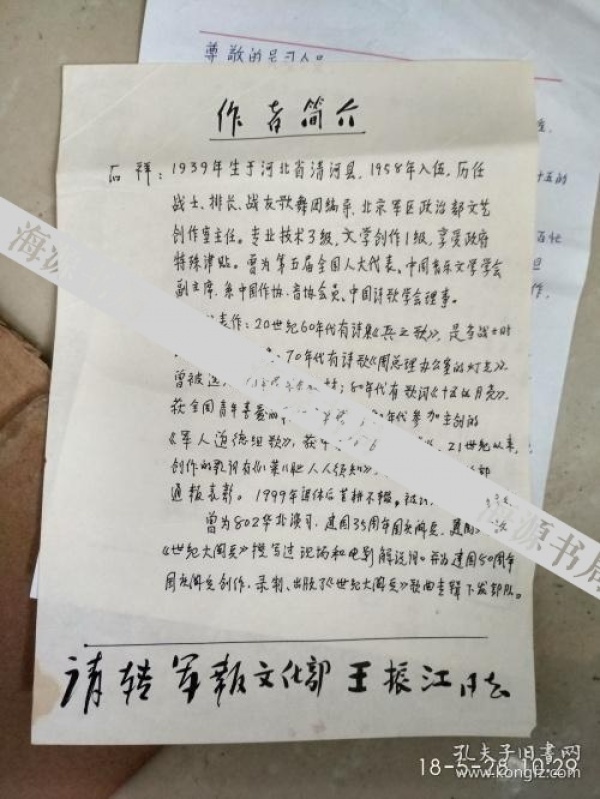 尊敬的
作者简介
石祥：1939年生于河北省清河县，1958年入伍。历任
战士、排长、战友歌舞团编导、北京军区政治部文艺
创作室主任。专业技术3级，文学创作1级，享受政府
特殊津贴。曾为第五届全国人大代表、中国音乐文学学会
副主席，系中国作协、音协会员、中国诗歌学会理事。
表作：20世纪60年代有诗集《兵之歌》，是当战士时
70年代有诗歌《周总理办公室的灯光》，
曾被选 80年代有歌词《十五的月亮》，
获全国青年喜爱的 年代参加主创的
《军人道德组歌》，获 21世纪以来，
创作的歌词有《八荣八耻人人须知》， 部
通报表彰。1999年退休后笔耕不辍，被
曾为802华北演习、建国35周年国庆阅兵、建国
《世纪大阅兵》撰写过现场和电影解说词。并为建国50周年
国庆阅兵创作、录制、出版了《世纪大阅兵》歌曲专辑下发部队。
请转军报文化部王振江同志
海源书局
18-5-28 10:29
孔夫子旧书网
www.kongfz.com